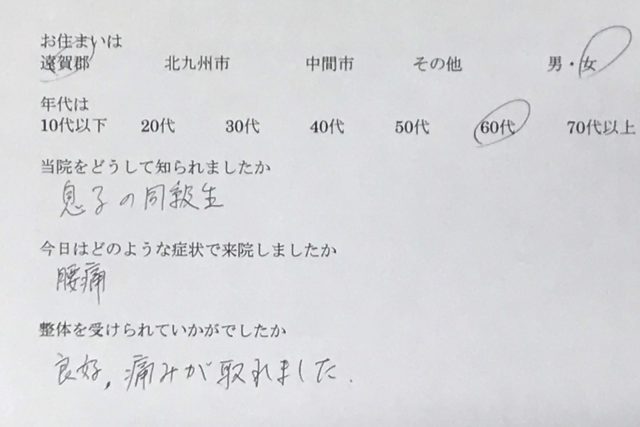 お住まいは
遠賀郡 北九州市 中間市 その他 男・女
年代は
10代以下 20代 30代 40代 50代 60代 70代以上
当院をどうして知られましたか
息子の同級生
今日はどのような症状で来院しましたか
腰痛
整体を受けられていかがでしたか
良好,痛みが取れました.